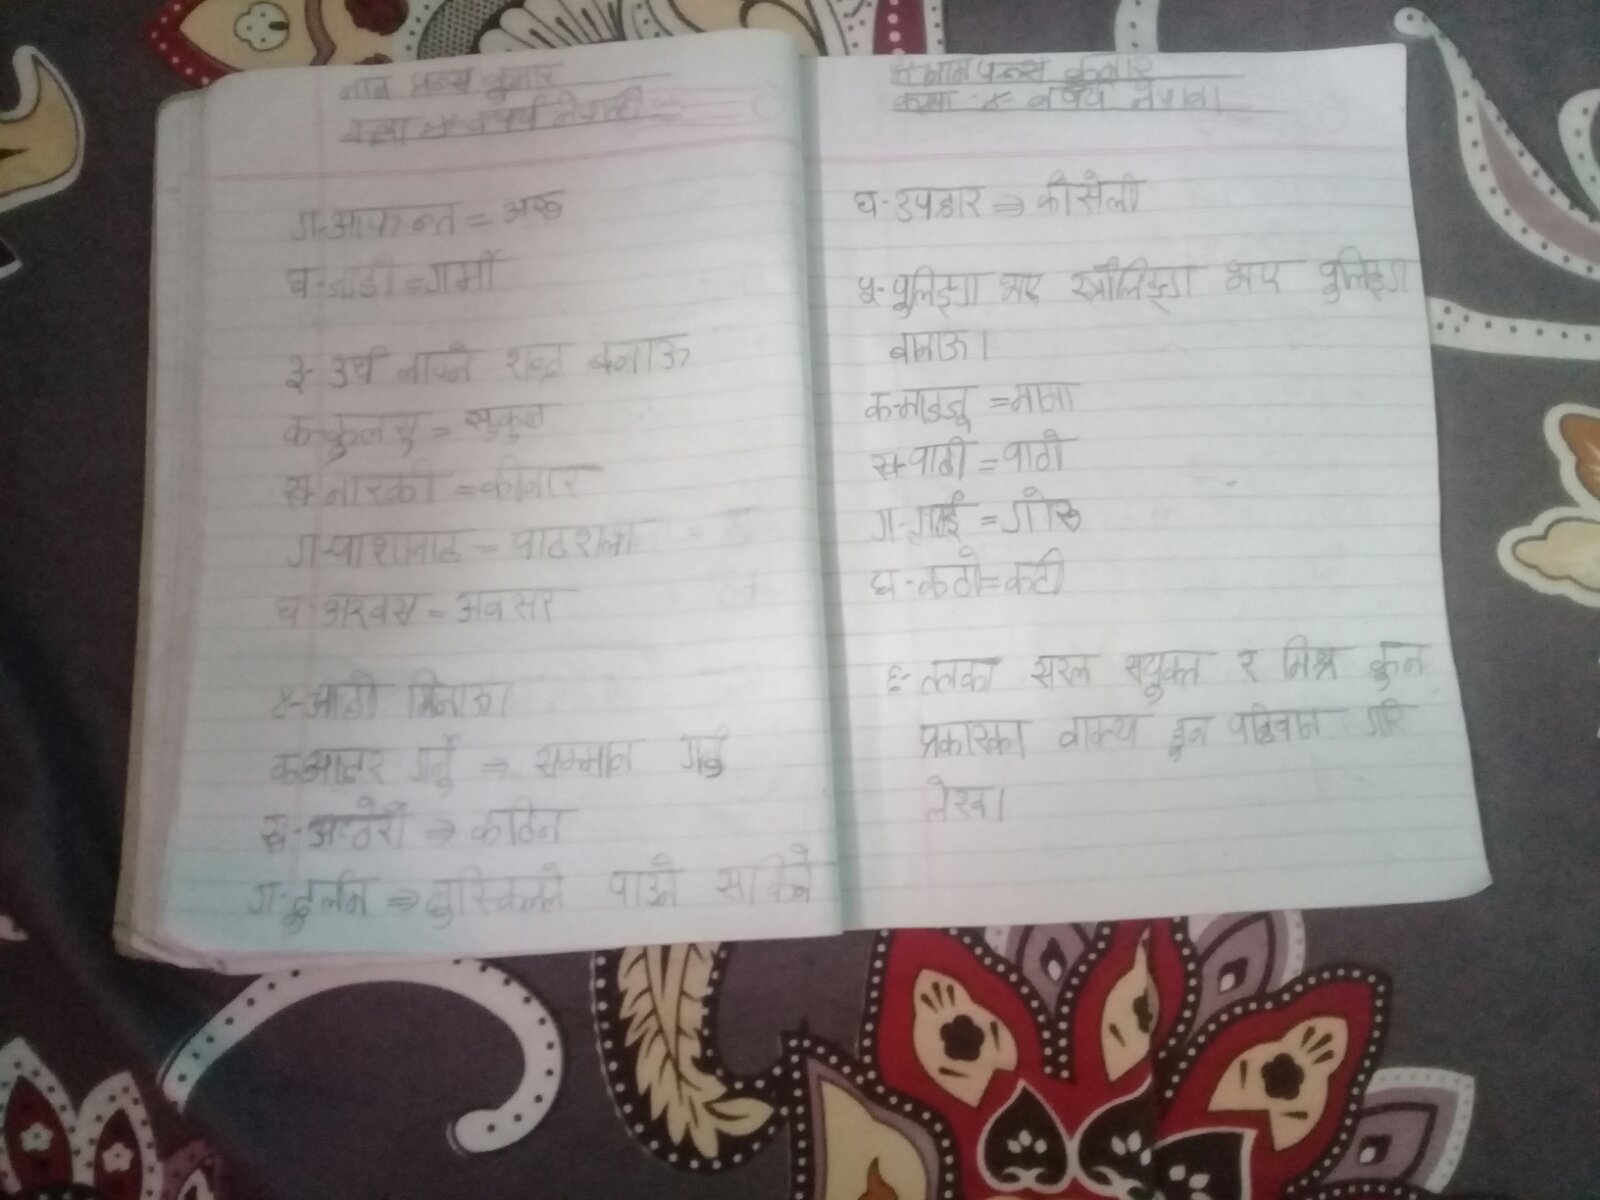 नाम प्रन्स कुमार
कक्षा ४ बिषय नेपाली
ग-आफन्त = अरु
घ-जाडो = गर्मी
३- अर्थ लाग्ने शब्द बनाऊ
क-कुलसु = सुकुल
ख-नारकी = कीनार
ग-पाशालाठ = पाठशला
घ-अरवस = अवसर
४-जोडी मिलाऊ।
क-आदर गर्नु ⇒ सम्मान गर्नु
ख-अप्ठेरो ⇒ कठिन
ग-दुर्लभ ⇒ मुस्किलले पाउन सकिने
नाम प्रन्स कुमार
कक्षा ४ बिषय नेपाली
घ-उपहार ⇒ कोसेली
५-पुलिङ्ग भए स्त्रीलिङ्ग भए पुलिङ्ग
बनाऊ।
क-माइजू = मामा
ख-पाठी = पाठो
ग-गाई = गोरु
घ-कठो = कटी
६- तलका सरल सयुक्त र मिश्र कुन
प्रकारका वाक्य हुन पहिचान गरि
लेख।